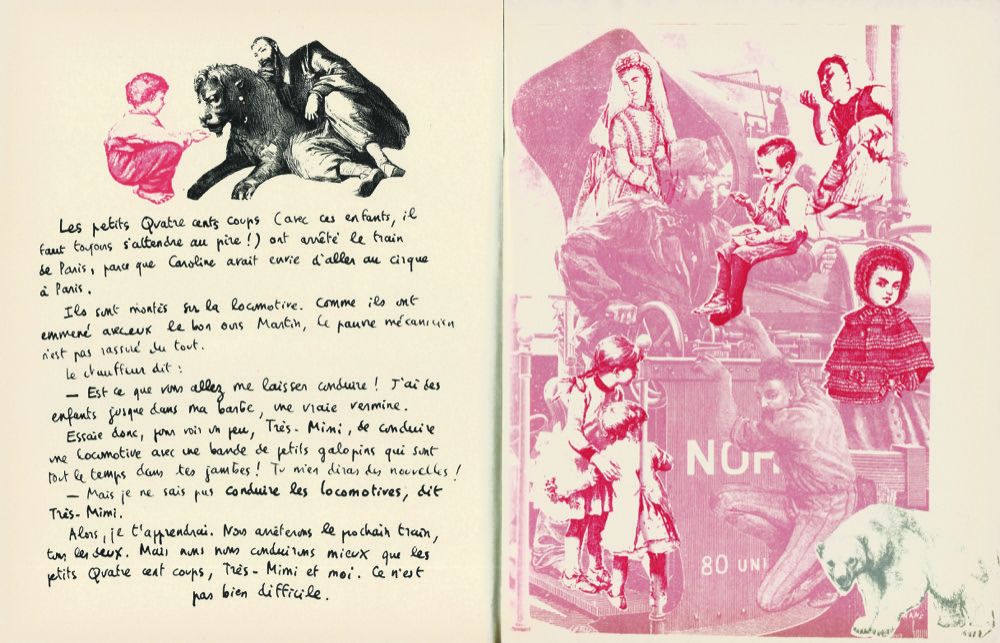 Les petits Quatre cents coups (avec ces enfants, il
faut toujours s'attendre au pire !) ont arrêté le train
de Paris, parce que Caroline avait envie d'aller au cirque
à Paris.
Ils sont montés sur la locomotive. Comme ils ont
emmené avec eux le bon ours Martin, le pauvre mécanicien
n'est pas rassuré du tout.
Le chauffeur dit :
— Est ce que vous allez me laisser conduire ! J'ai des
enfants jusque dans ma barbe, une vraie vermine.
Essaie donc, pour voir un peu, Très-Mimi, de conduire
une locomotive avec une bande de petits galopins qui sont
tout le temps dans tes jambes ! Tu m'en diras des nouvelles !
— Mais je ne sais pas conduire les locomotives, dit
Très-Mimi.
Alors, je t'apprendrai. Nous arrêterons le prochain train,
tous les deux. Mais nous nous conduirons mieux que les
petits Quatre cent coups, Très-Mimi et moi. Ce n'est
pas bien difficile.
NOR
80 UNI